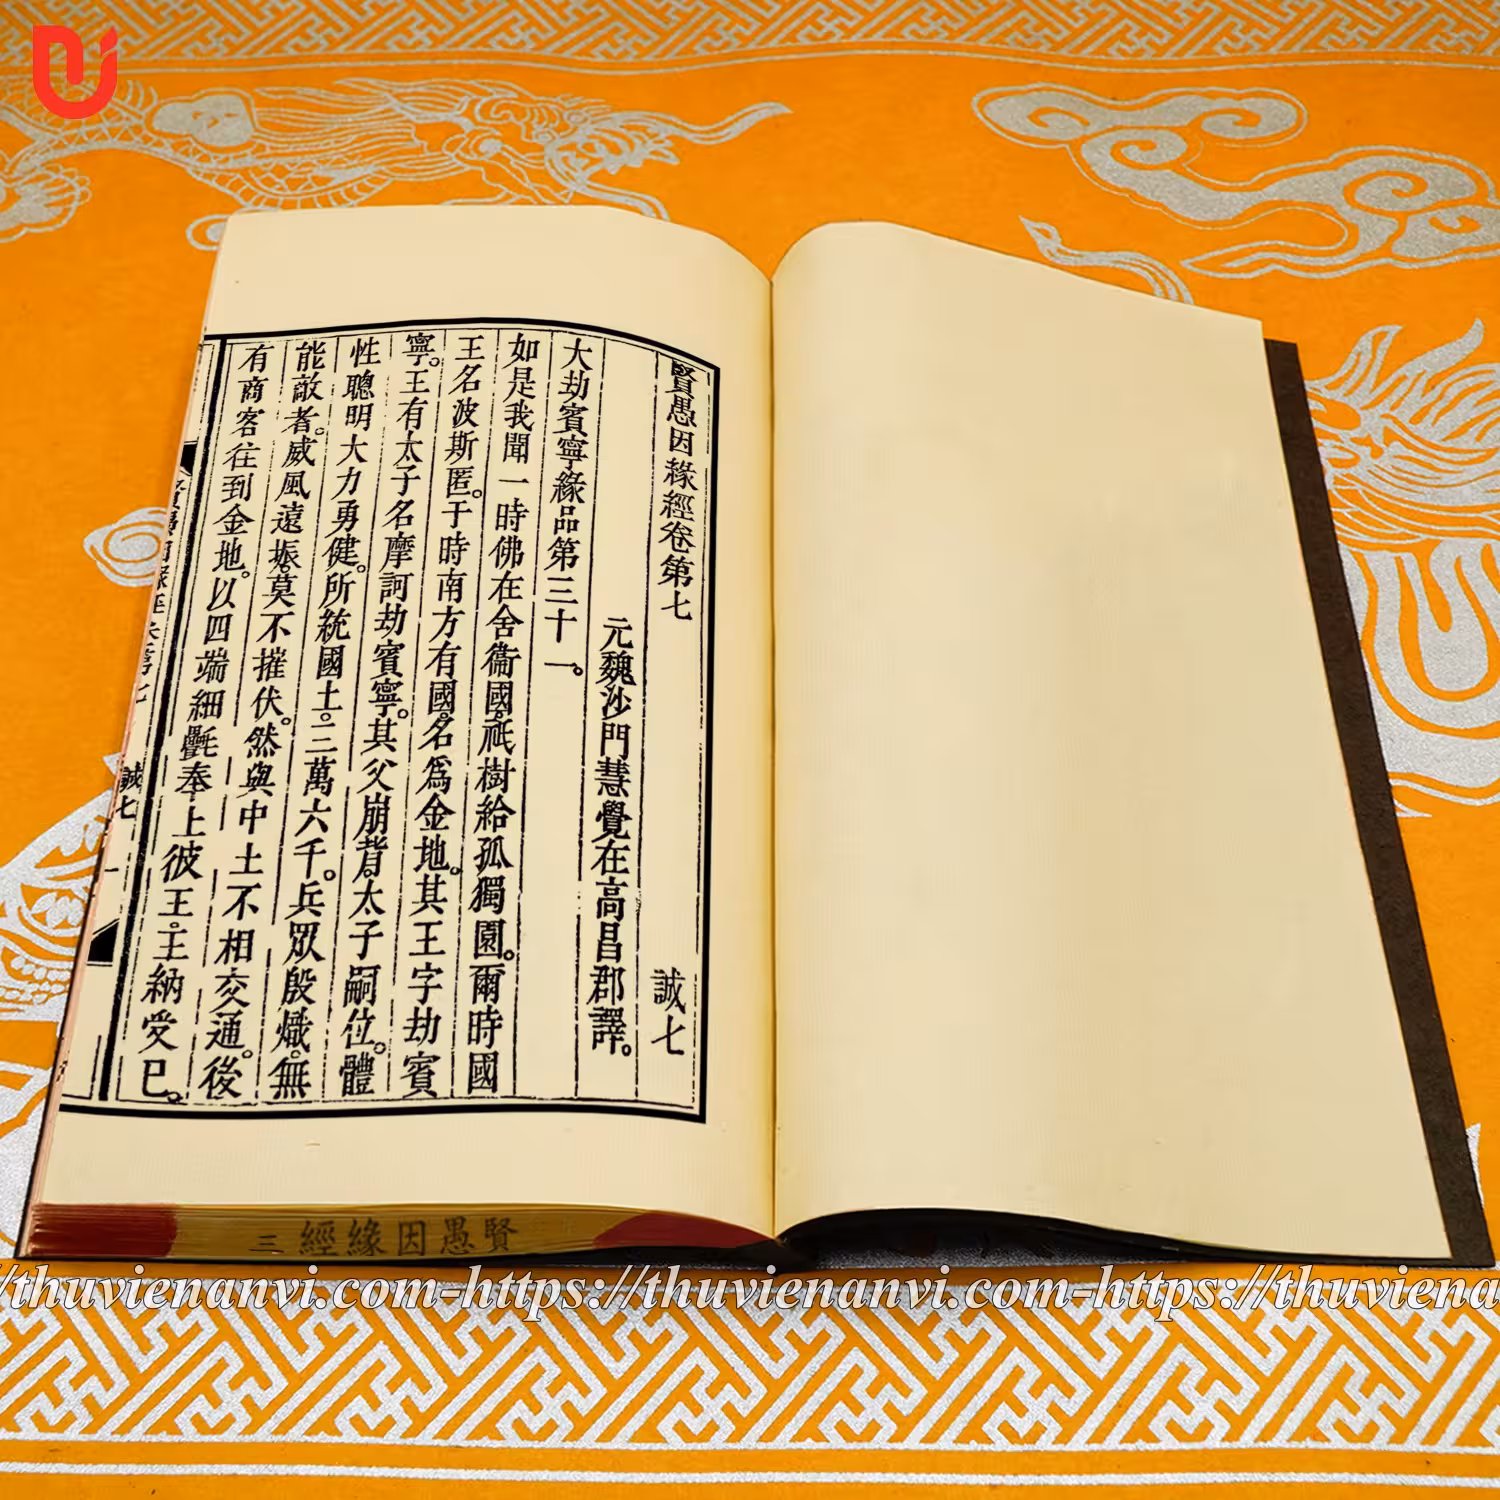 賢愚因緣經卷第七 誠七
元魏沙門慧覺在高昌郡譯。
大劫賓寧緣品第三十一。
如是我聞一時佛在舍衞國。祇樹給孤獨園。爾時國
王名波斯匿。于時南方有國。名為金地。其王字劫賓
寧。王有太子名摩訶劫賓寧。其父崩背。太子嗣位。體
性聰明大力勇健。所統國土。三萬六千。兵眾殷熾。無
能敵者。威風遠振。莫不摧伏。然與中土不相交通。後
有商客往到金地。以四端細㲲奉上彼王。王納受已。
誠七
賢愚因緣經 三
https://thuvienanvi.com-https://thuvienanvi.com-https://thuviena